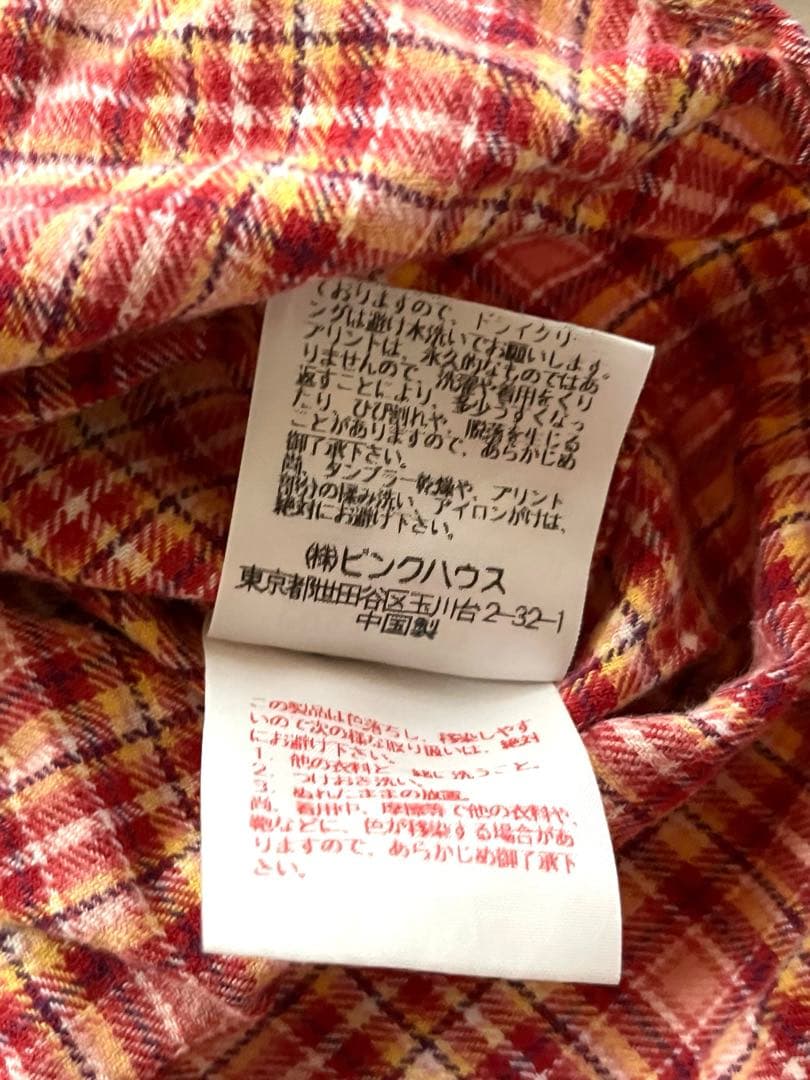 ておりますので、ドライクリー
ングは避け水洗いでお願いします。
プリントは、永久的なものではあ
りませんので、洗濯や着用をくり
返すことにより、多少うすくなっ
たり、ひび割れや、脱落を生じる
ことがありますので、あらかじめ
御了承下さい。
尚、タンブラー乾燥や、プリント
部分の揉み洗い、アイロンがけは、
絶対にお避け下さい。
(株)ピンクハウス
東京都世田谷区玉川台2-32-1
中国製
この製品は色落ちし、移染しやす
いので次の様な取り扱いは、絶対
にお避け下さい。
1. 他の衣料と一緒に洗うこと。
2. つけおき洗い。
3. ぬれたままの放置。
尚、着用中、摩擦等で他の衣料や、
鞄などに、色が移染する場合があ
りますので、あらかじめ御了承下
さい。